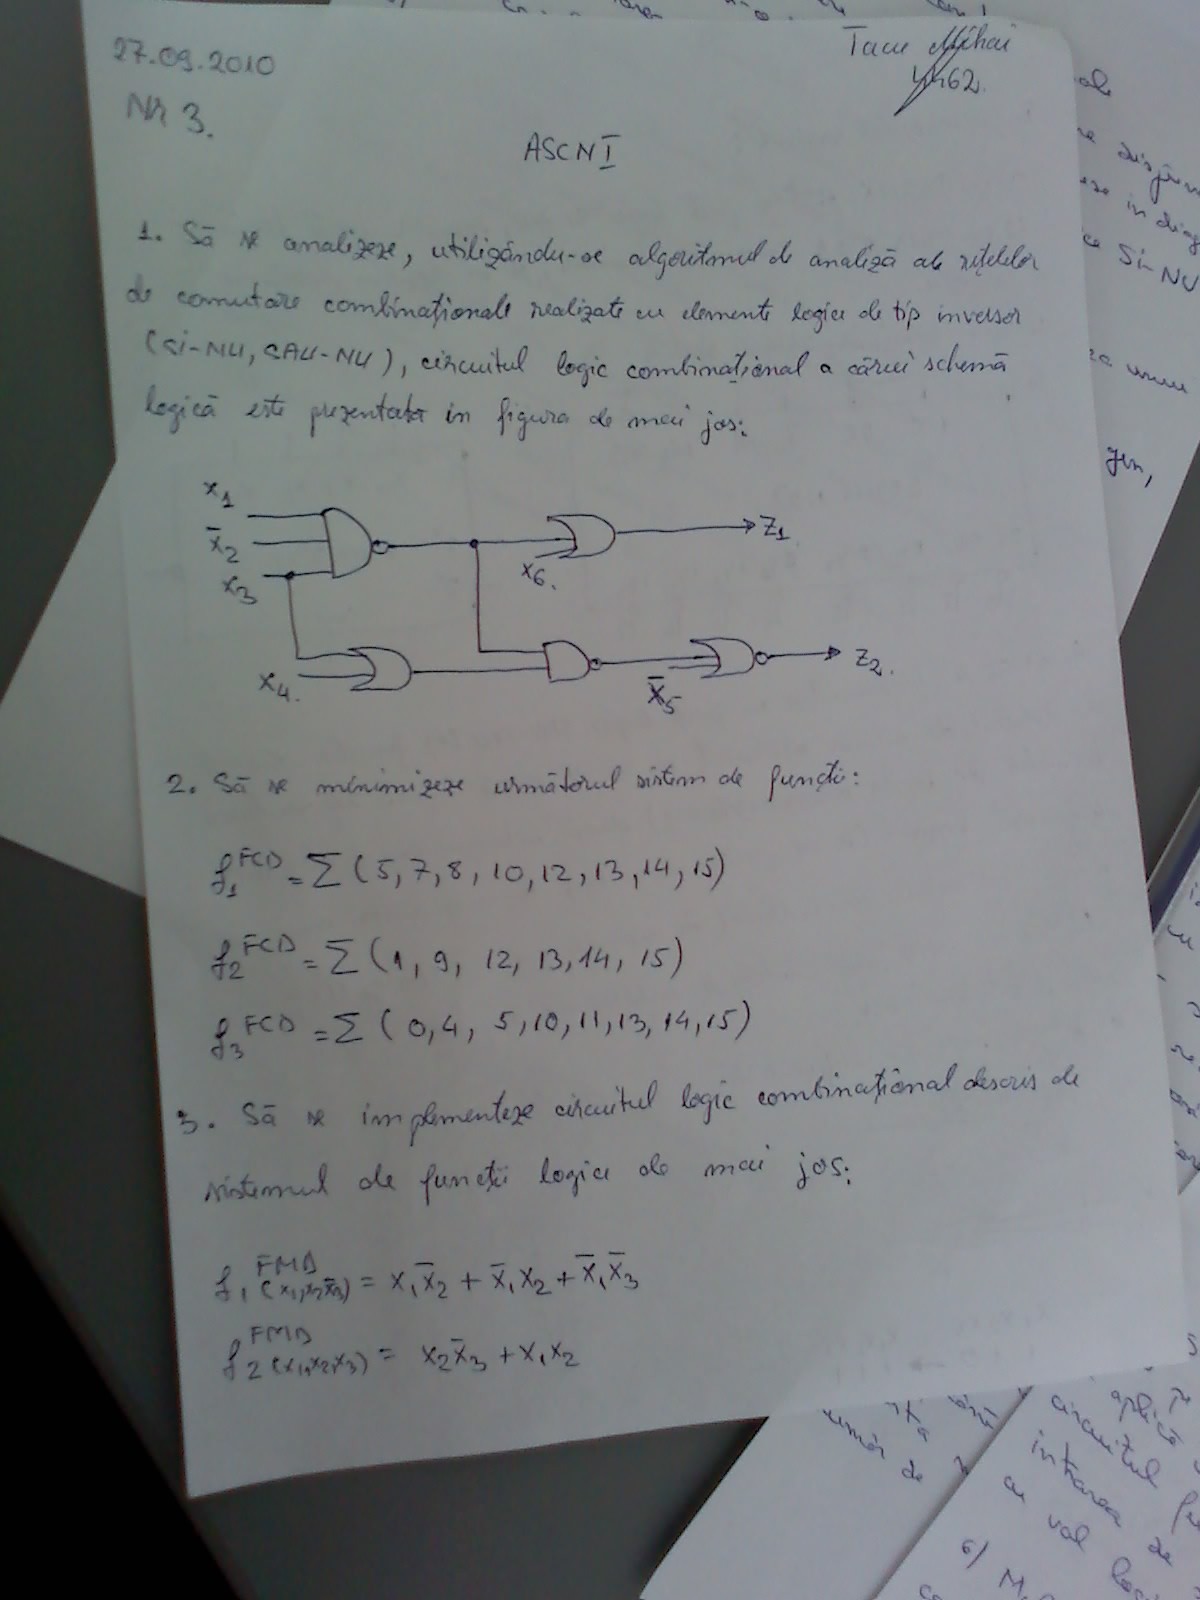 27.09.2010
Nr 3.
Mihai
4462.
ASCN I
1. Să se analizeze, utilizându-se algoritmul de analiză ale rețelelor
de comutare combinaționale realizate cu elemente logice de tip inversor
(SI-NU, SAU-NU), circuitul logic combinațional a cărui schemă
logică este prezentată in figura de mai jos:
x₁
x̄₂
x₃
x₆.
Z₁
x₄.
x̄₅
Z₂.
2. Să se minimizeze următorul sistem de funcții:
f₁ᶠᶜᴰ = Σ (5, 7, 8, 10, 12, 13, 14, 15)
f₂ᶠᶜᴰ = Σ (1, 9, 12, 13, 14, 15)
f₃ᶠᶜᴰ = Σ (0, 4, 5, 10, 11, 13, 14, 15)
3. Să se implementeze circuitul logic combinațional descris de
sistemul de funcții logice de mai jos:
f₁ᶠᴹᴰ(x₁,x₂,x₃) = x₁x̄₂ + x̄₁x₂ + x̄₁x̄₃
f₂ᶠᴹᴰ(x₁,x₂,x₃) = x₂x̄₃ + x₁x₂
in diag
Si-NU
circuitul
intrarea de
cu val
număr de
6)